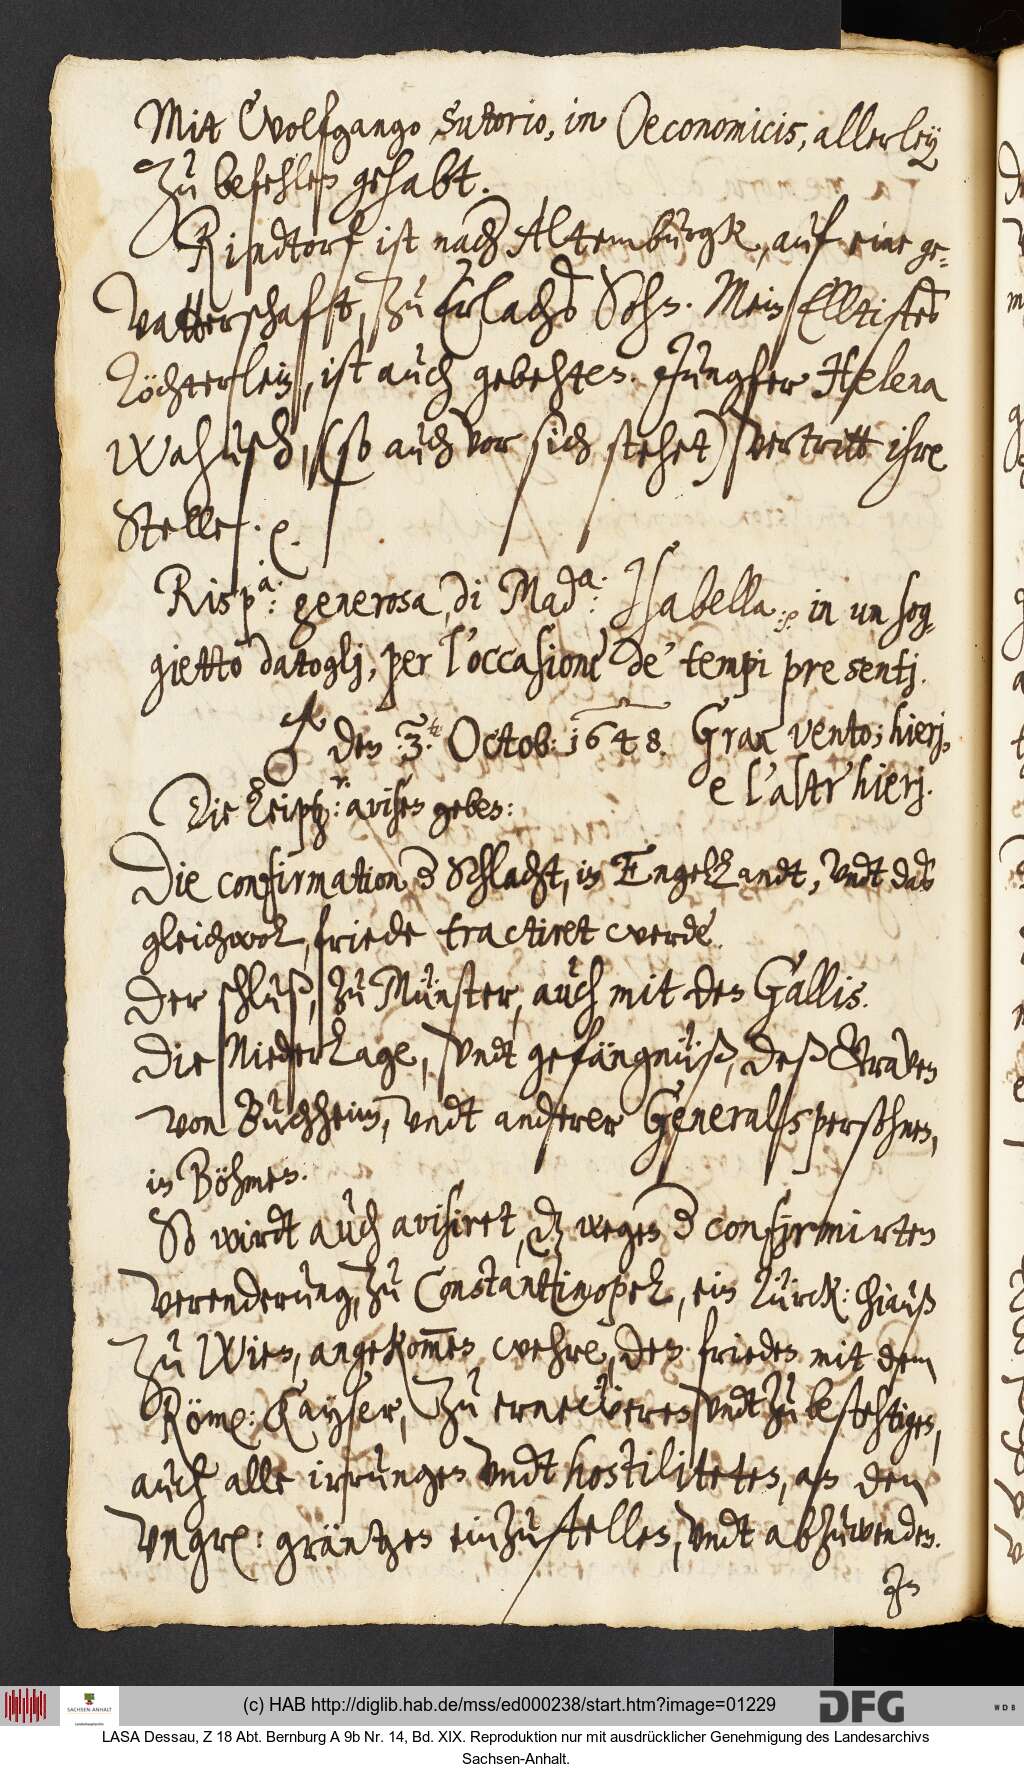 Mit Wolfgango Sutorio, in Oeconomicis, allerley
zu befehlen gehabt.
Rindtorf ist nach Altemburgk, auf eine ge-
vatterschafft, zu Erlachs Sohn. Mein Elltistes
Töchterlein, ist auch gebehten. Jungfer Helena
Wahusch, (so auch vor sich stehet) vertritt ihre
Stelle. etc.
Risp.a: generosa, di Mad.a: Isabella etc. in un sog-
gietto datoglj, per l'occasione de' tempi presentj.
den 3.ten Octob: 1648. Gran vento; hierj,
e l'altr'hierj.
Die Leiptz:r. avisen geben:
Die confirmation der Schlacht, in Engellandt, undt das
gleichwol, friede tractiret werde.
Der schluß, zu Münster, auch mit den Gallis.
Die Niederlage, undt gefängnüß, deß Graven
von Buchheim, undt anderer Generalspersohnen,
in Böhmen.
So wirdt auch avisiret, daß wegen der confirmirten
verenderung, zu Constantinopel, ein Türck: Chiauß
zu Wien, angekommen wehre, den frieden mit dem
Röm: Kayser, zu ernewern undt zu bestehtigen,
auch alle irrungen undt hostiliteten, an den
Ungr: gräntzen einzustellen, undt abzuwenden.
In
(c) HAB http://diglib.hab.de/mss/ed000238/start.htm?image=01229
SACHSEN-ANHALT
DFG
WDB
LASA Dessau, Z 18 Abt. Bernburg A 9b Nr. 14, Bd. XIX. Reproduktion nur mit ausdrücklicher Genehmigung des Landesarchivs
Sachsen-Anhalt.